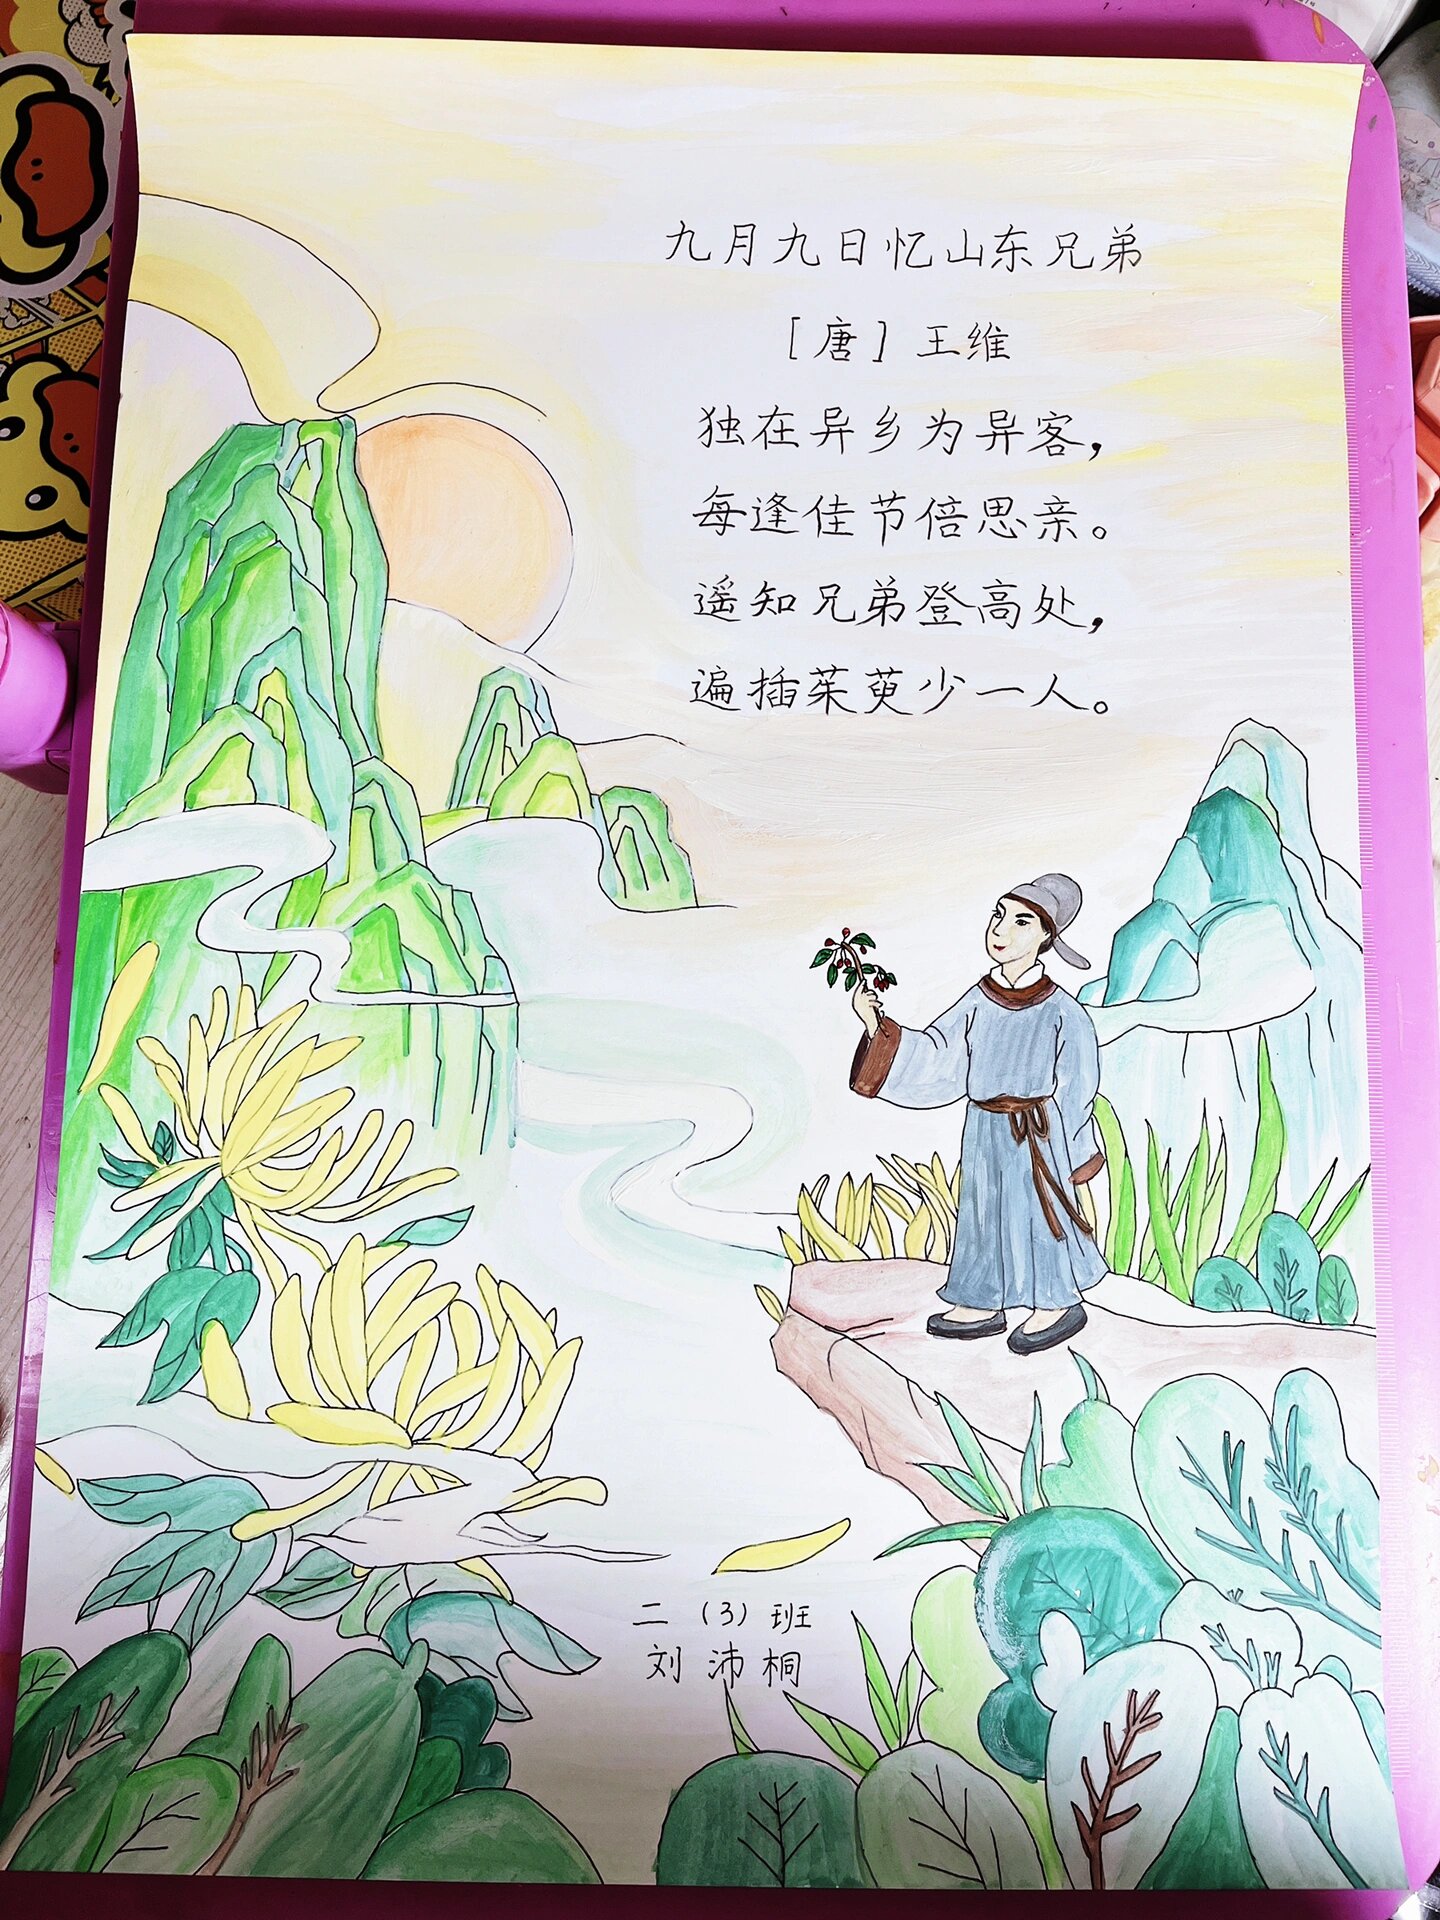 九月九日忆山东兄弟
[唐] 王维
独在异乡为异客，
每逢佳节倍思亲。
遥知兄弟登高处，
遍插茱萸少一人。
二（3）班
刘沛桐